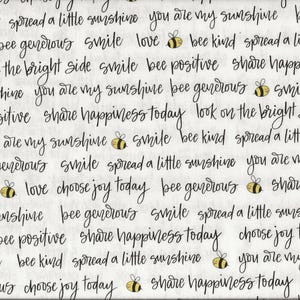 spread a little sunshine you are my sunshine
bee generous smile love bee kind spread a li
the bright side smile bee positive share happ
shine you are my sunshine bee generous sm
sitive share happiness today look on the bright
are my sunshine smile bee kind spread a litt
enerous smile spread a little sunshine you are m
love choose joy today bee generous share
unshine bee generous smile spread a little suns
ee positive share happiness today choose jo
bee kind spread a little sunshine you are my
us choose joy today share happiness today